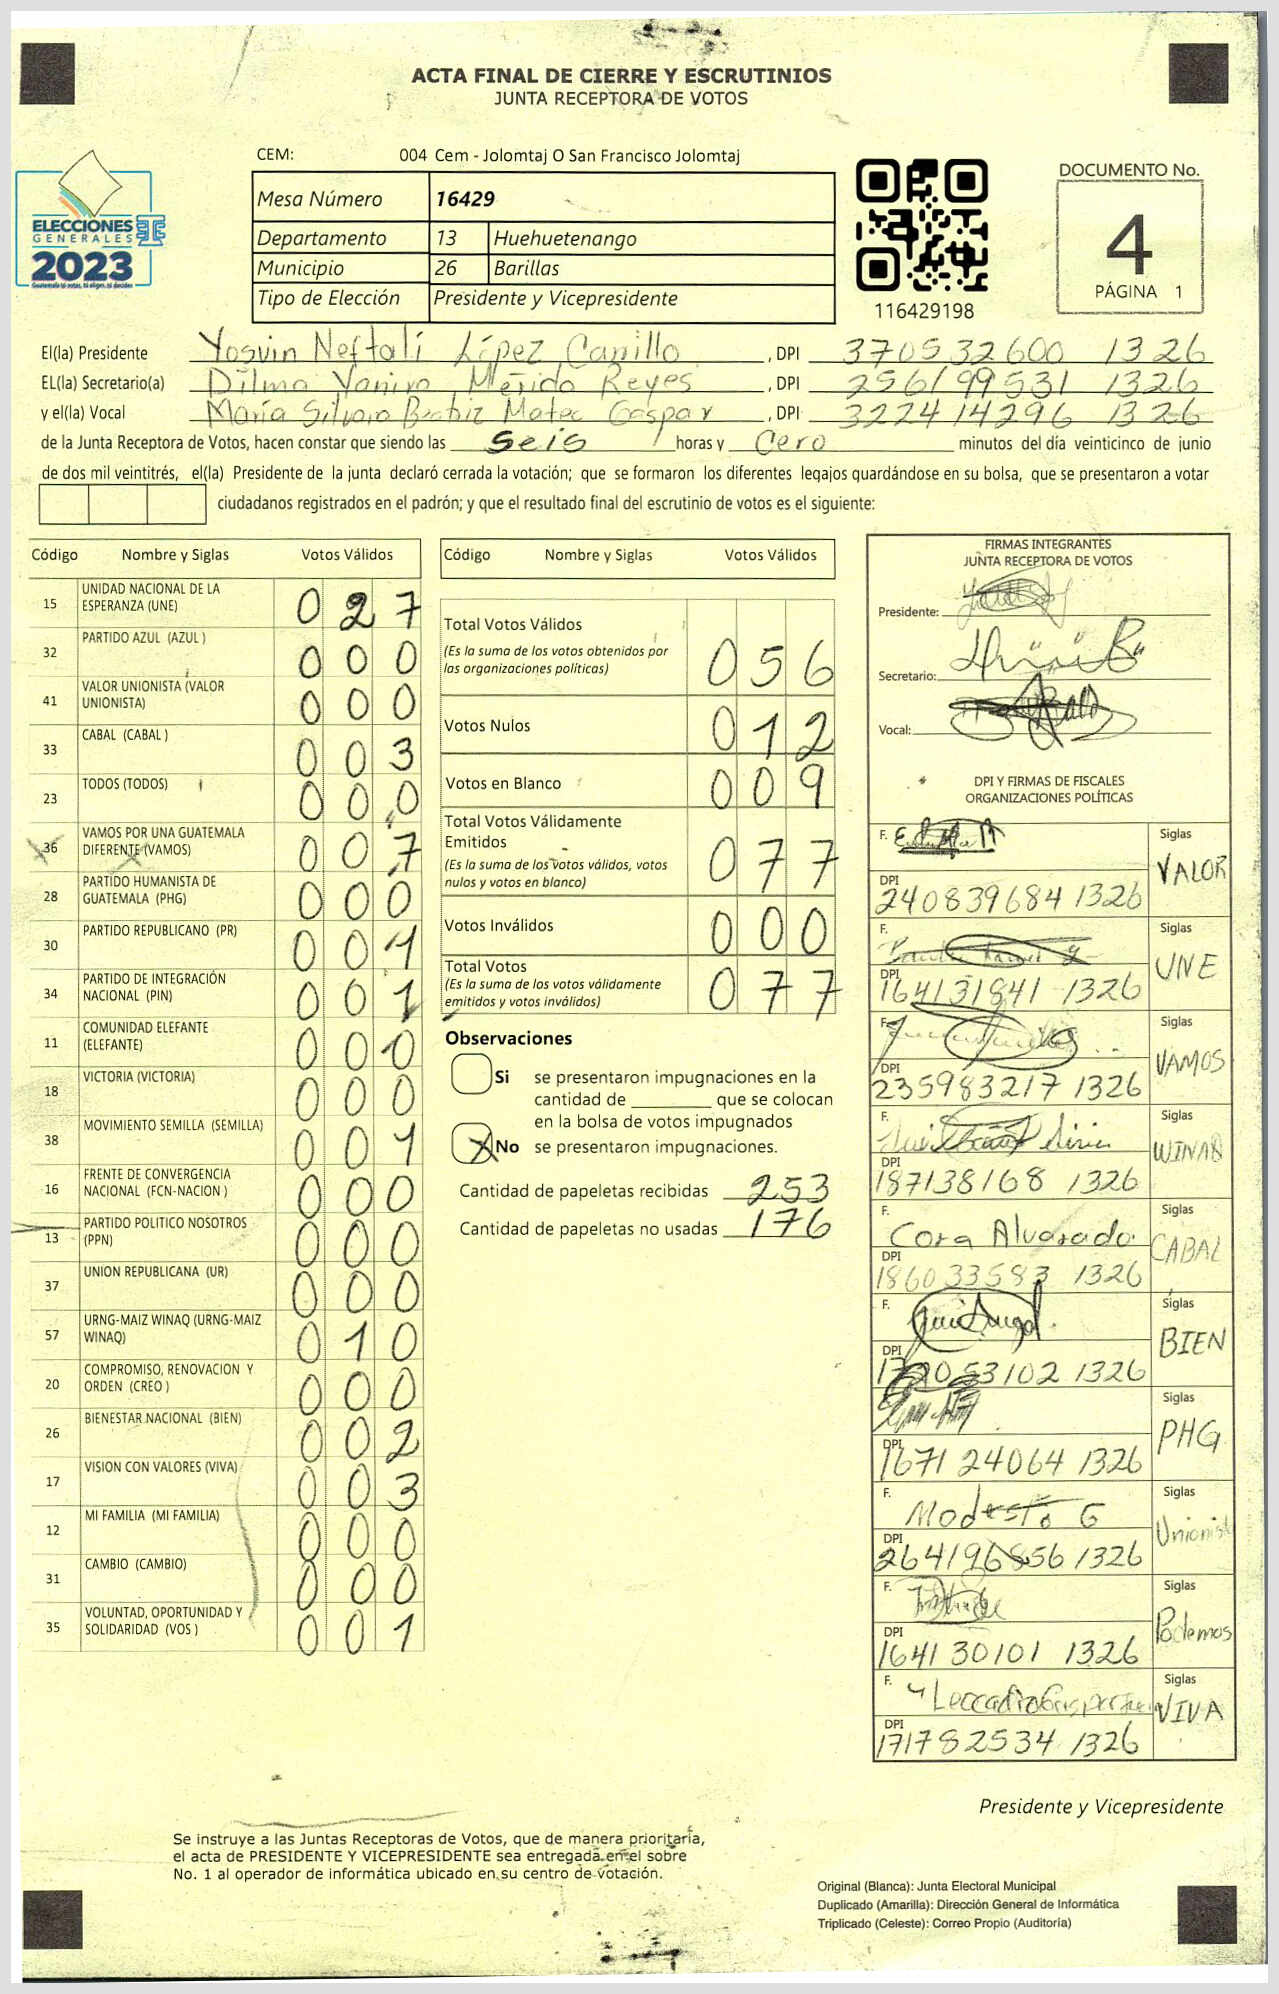 ACTA FINAL DE CIERRE Y ESCRUTINIOS
JUNTA RECEPTORA DE VOTOS
CEM: 004 Cem - Jolomtaj O San Francisco Jolomtaj
Mesa Número 16429
Departamento 13 Huehuetenango
Municipio 26 Barillas
Tipo de Elección Presidente y Vicepresidente
ELECCIONES
GENERALES
2023
116429198
DOCUMENTO No.
4
PÁGINA 1
El(la) Presidente Yosvin Neftalí López Canillo, DPI 370532600 1326
EL(la) Secretario(a) Dilma Yaniro Mérido Reyes, DPI 256199531 1326
y el(la) Vocal María Silvara Beatriz Mateo Gaspar, DPI 322414296 1326
de la Junta Receptora de Votos, hacen constar que siendo las seis horas y Cero minutos del día veinticinco de junio
de dos mil veintitrés, el(la) Presidente de la junta declaró cerrada la votación; que se formaron los diferentes legajos guardándose en su bolsa, que se presentaron a votar
ciudadanos registrados en el padrón; y que el resultado final del escrutinio de votos es el siguiente:
Código Nombre y Siglas Votos Válidos
15 UNIDAD NACIONAL DE LA ESPERANZA (UNE) 0 2 7
32 PARTIDO AZUL (AZUL ) 0 0 0
41 VALOR UNIONISTA (VALOR UNIONISTA) 0 0 0
33 CABAL (CABAL ) 0 0 3
23 TODOS (TODOS) 0 0 0
36 VAMOS POR UNA GUATEMALA DIFERENTE (VAMOS) 0 0 7
28 PARTIDO HUMANISTA DE GUATEMALA (PHG) 0 0 0
30 PARTIDO REPUBLICANO (PR) 0 0 1
34 PARTIDO DE INTEGRACIÓN NACIONAL (PIN) 0 0 1
11 COMUNIDAD ELEFANTE (ELEFANTE) 0 0 0
18 VICTORIA (VICTORIA) 0 0 0
38 MOVIMIENTO SEMILLA (SEMILLA) 0 0 1
16 FRENTE DE CONVERGENCIA NACIONAL (FCN-NACION ) 0 0 0
13 PARTIDO POLITICO NOSOTROS (PPN) 0 0 0
37 UNION REPUBLICANA (UR) 0 0 0
57 URNG-MAIZ WINAQ (URNG-MAIZ WINAQ) 0 1 0
20 COMPROMISO, RENOVACION Y ORDEN (CREO ) 0 0 0
26 BIENESTAR NACIONAL (BIEN) 0 0 2
17 VISION CON VALORES (VIVA) 0 0 3
12 MI FAMILIA (MI FAMILIA) 0 0 0
31 CAMBIO (CAMBIO) 0 0 0
35 VOLUNTAD, OPORTUNIDAD Y SOLIDARIDAD (VOS ) 0 0 1
Código Nombre y Siglas Votos Válidos
Total Votos Válidos
(Es la suma de los votos obtenidos por
las organizaciones políticas) 0 5 6
Votos Nulos 0 1 2
Votos en Blanco 0 0 9
Total Votos Válidamente
Emitidos
(Es la suma de los votos válidos, votos
nulos y votos en blanco) 0 7 7
Votos Inválidos 0 0 0
Total Votos
(Es la suma de los votos válidamente
emitidos y votos inválidos) 0 7 7
Observaciones
Si se presentaron impugnaciones en la
cantidad de ________ que se colocan
en la bolsa de votos impugnados
X No se presentaron impugnaciones.
Cantidad de papeletas recibidas 253
Cantidad de papeletas no usadas 176
FIRMAS INTEGRANTES
JUNTA RECEPTORA DE VOTOS
Presidente:
Secretario:
Vocal:
DPI Y FIRMAS DE FISCALES
ORGANIZACIONES POLÍTICAS
F. Siglas VALOR
DPI 240839684 1326
F. Siglas UNE
DPI 164131841 1326
F. Siglas VAMOS
DPI 235983217 1326
F. Siglas WINAQ
DPI 187138168 1326
F. Cora Alvarado Siglas CABAL
DPI 186033583 1326
F. Luis Angel Siglas BIEN
DPI 1326
Siglas PHG
DPI 1671 24064 1326
F. Modesto G Siglas Unionista
DPI 264196856 1326
F. Siglas Podemos
DPI 1641 30101 1326
F. Siglas VIVA
DPI 171782534 1326
Presidente y Vicepresidente
Se instruye a las Juntas Receptoras de Votos, que de manera prioritaria,
el acta de PRESIDENTE Y VICEPRESIDENTE sea entregada en el sobre
No. 1 al operador de informática ubicado en su centro de votación.
Original (Blanca): Junta Electoral Municipal
Duplicado (Amarilla): Dirección General de Informática
Triplicado (Celeste): Correo Propio (Auditoría)